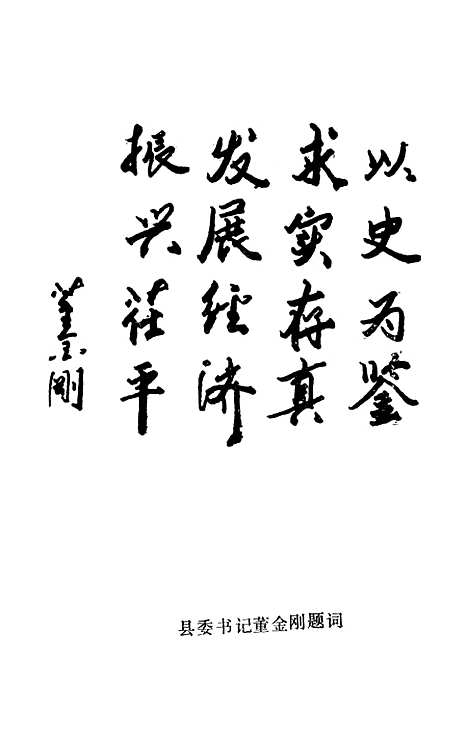 以史为鉴
求实存真
发展经济
振兴茌平
董金刚
县委书记董金刚题词